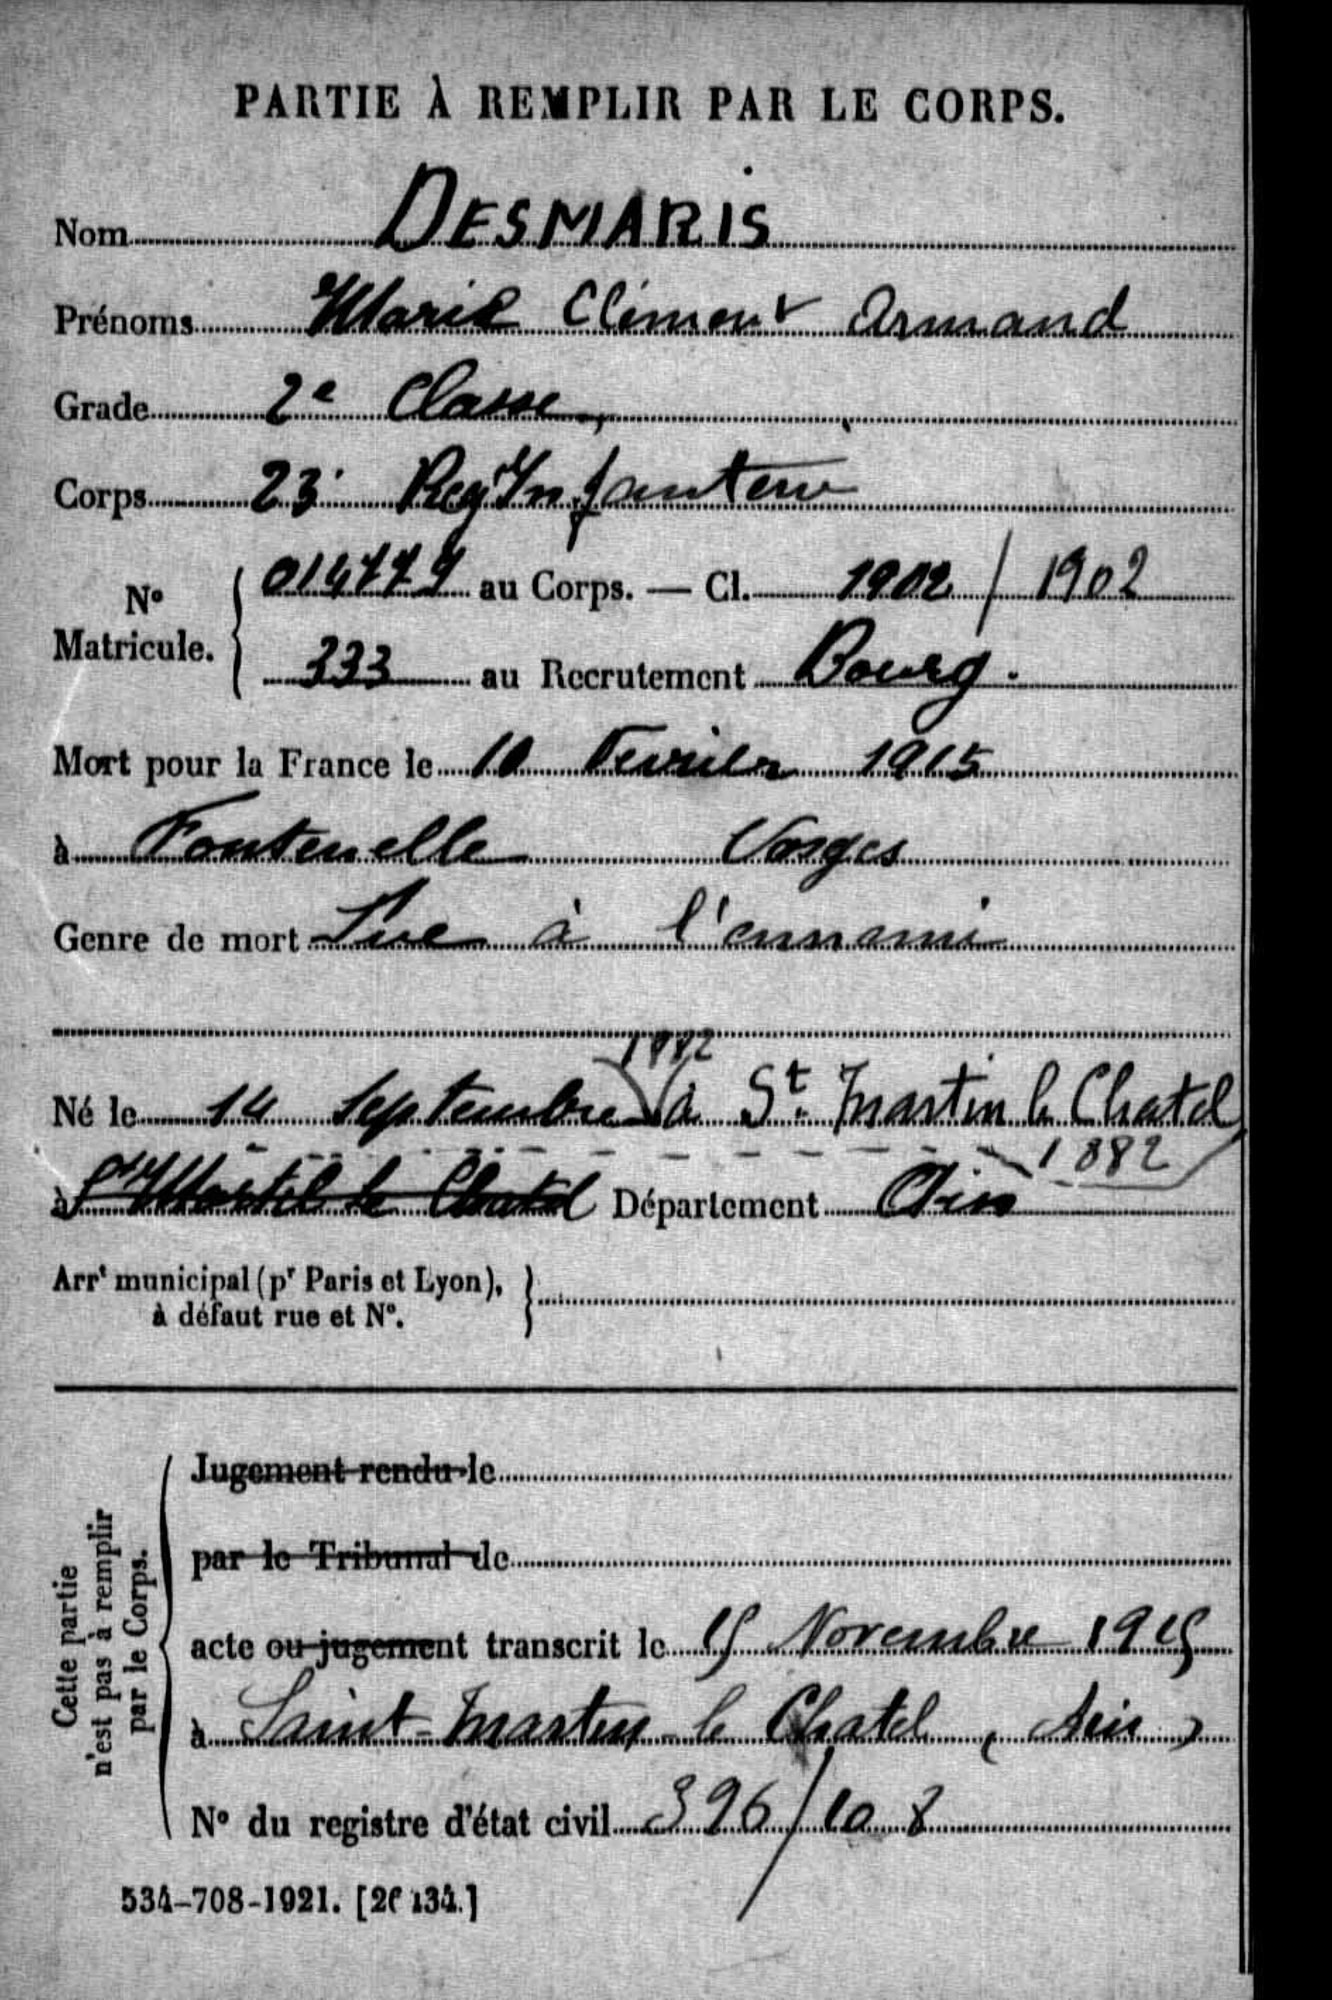 PARTIE À REMPLIR PAR LE CORPS.
Nom DESMARIS
Prénoms Marie Clément Armand
Grade 2e Classe,
Corps 23 Reg Infanterie
No Matricule. 014779 au Corps. — Cl. 1902 / 1902
333 au Recrutement Bourg.
Mort pour la France le 10 Fevrier 1915
à Fontenelle Vosges
Genre de mort Tué à l'ennemi
1882
Né le 14 Septembre à St. Martin le Chatel
1882
à St Martil le Chatel Département Ain
Arrt municipal (pr Paris et Lyon),
à défaut rue et No.
Cette partie
n'est pas à remplir
par le Corps.
Jugement rendu le
par le Tribunal de
acte ou jugement transcrit le 15 Novembre 1915
à Saint-Martin-le Chatel (Ain)
No du registre d'état civil 396/10 8
534-708-1921. [26134.]